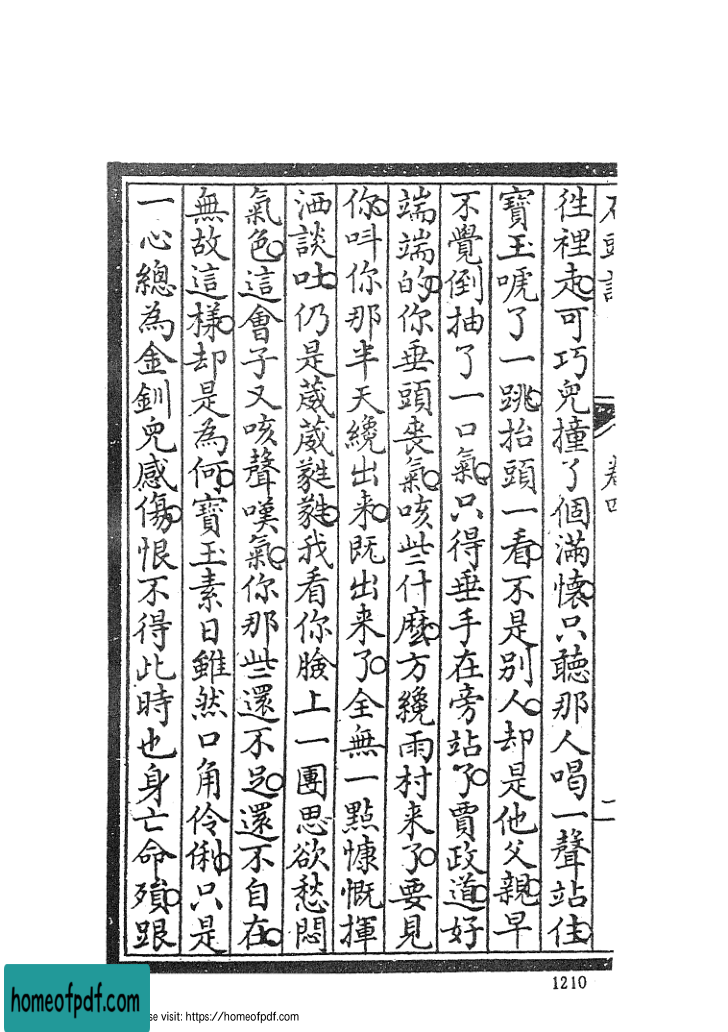 石頭記
卷四
二
徃裡走。可巧兒撞了個滿懷。只聽那人喝一聲站住。
寶玉唬了一跳。抬頭一看。不是別人。却是他父親。早
不覺倒抽了一口氣。只得垂手在旁站了。賈政道。好
端端的。你垂頭喪氣。咳些什麽。方纔雨村来了。要見
你。呌你那半天纔出来。既出来了。全無一點慷慨揮
洒談吐。仍是葳葳蕤蕤。我看你臉上一團思欲愁悶
氣色。這會子又咳聲嘆氣。你那些還不足。還不自在。
無故這樣。却是為何。寶玉素日雖然口角伶俐。只是
一心總為金釧兒感傷。恨不得此時也身亡命殞。跟
1210
homeofpdf.com
se visit: https://homeofpdf.com